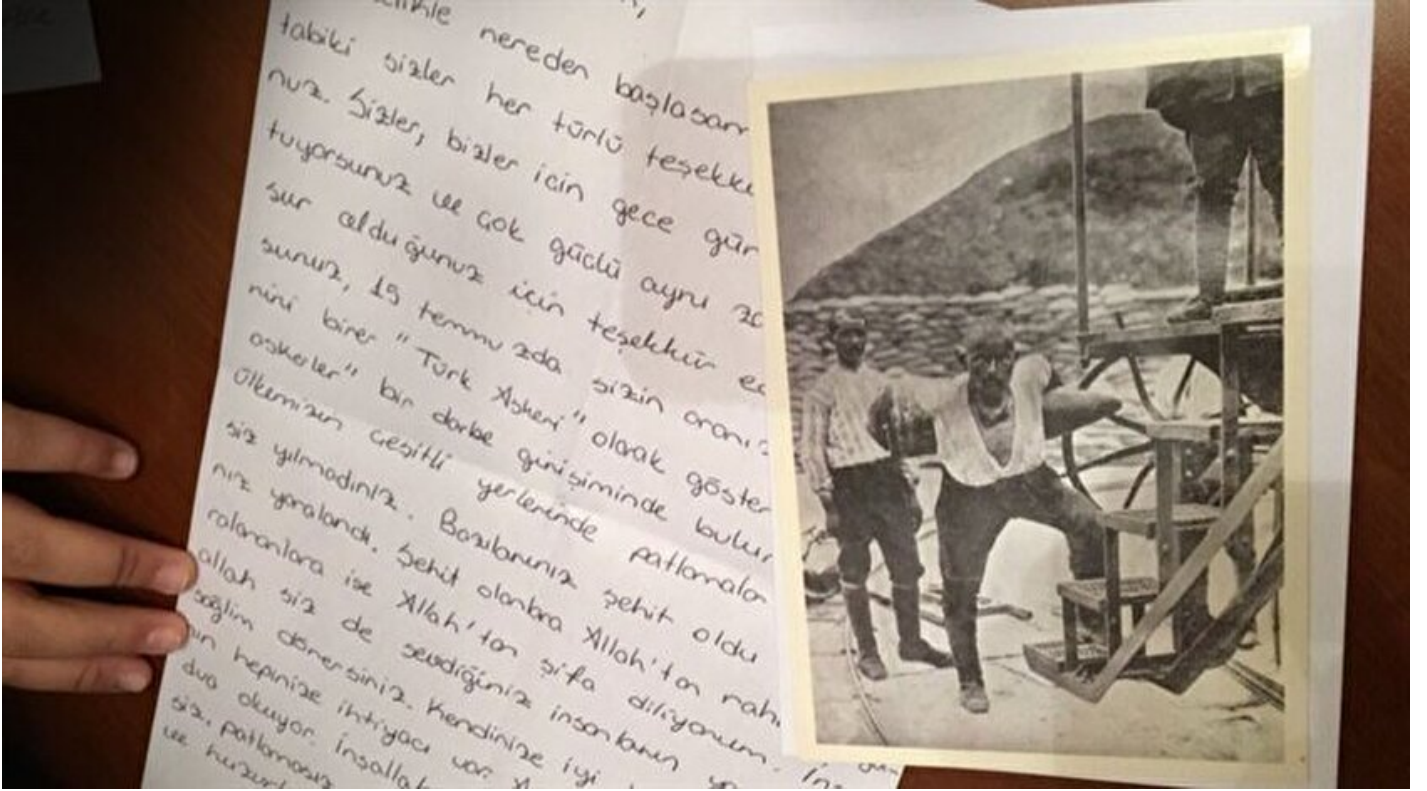 nereden başlasam
tabiki sizler her türlü teşekkü
nuz. Sizler, bizler için gece gün
tuyorsunuz ve çok güçlü aynı za
sur olduğunuz için teşekkür ed
sunuz, 15 temmuzda sizin aranız
nini birer "Türk Askeri" olarak göster
askerler" bir darbe girişiminde bulun
Ülkemizin çeşitli yerlerinde patlamalar
siz yılmadınız. Bazılarınız şehit oldu
nız yaralandı. Şehit olanlara Allah'tan rah
ralananlara ise Allah'tan şifa diliyorum. İnş
allah siz de sevdiğiniz insanların ya
sağlim dönersiniz. Kendinize iyi
nin hepinize ihtiyacı var.
dua okuyor. İnşallah
siz, patlamasız
ve huzurl